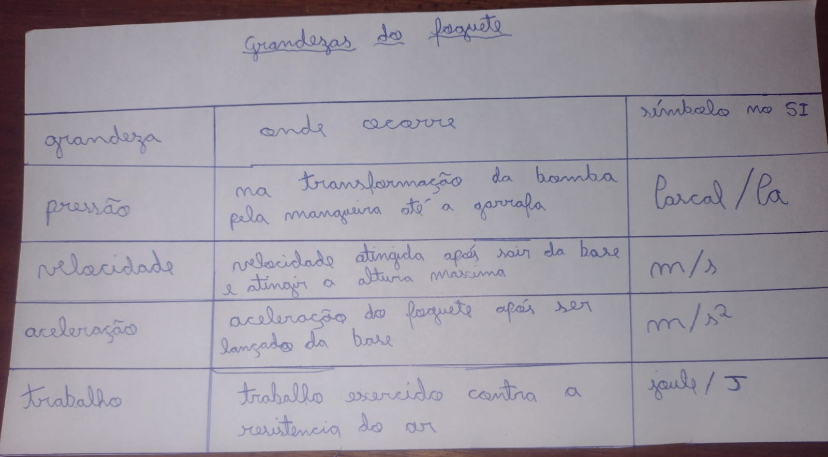 Grandezas do foguete
grandeza
onde ocorre
símbolo no SI
pressão
na transformação da bomba
pela mangueira até a garrafa
Pascal/Pa
velocidade
velocidade atingida após sair da base
e atingir a altura maxima
m/s
aceleração
aceleração do foguete após ser
lançado da base
m/s²
trabalho
trabalho exercido contra a
resistencia do ar
joule/J